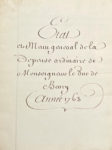 Etat
et Menu general de la
Depense ordinaire de
Monseigneur le duc de
Berry
Année 1763